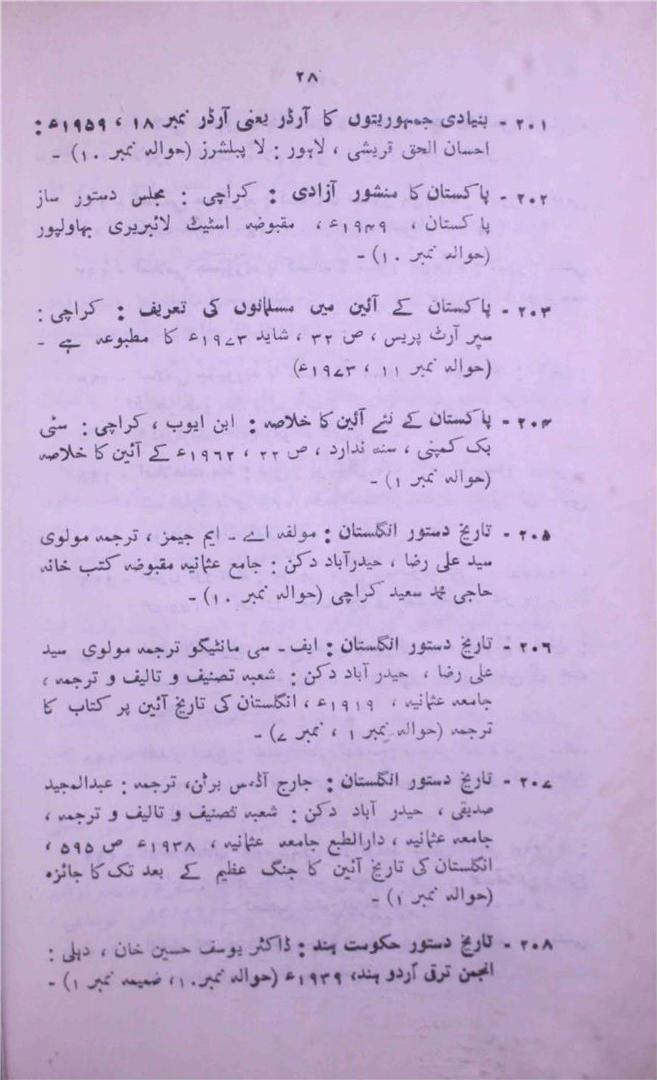 ۲۸
۲۰۱ - بنیادی جمہوریتوں کا آرڈر یعنی آرڈر نمبر ۱۸ ، ۱۹۵۹ء :
احسان الحق قریشی ، لاہور : لا پبلشرز (حوالہ نمبر ۱۰) -
۲۰۲ - پاکستان کا منشور آزادی : کراچی : مجلس دستور ساز
پاکستان ، ۱۹۴۹ء ، مقبوضہ اسٹیٹ لائبریری بہاولپور
(حوالہ نمبر ۱۰) -
۲۰۳ - پاکستان کے آئین میں مسلمانوں کی تعریف : کراچی :
سپر آرٹ پریس ، ص ۳۲ ، شاید ۱۹۷۳ء کا مطبوعہ ہے -
(حوالہ نمبر ۱۱ ، ۱۹۷۳ء)
۲۰۴ - پاکستان کے نئے آئین کا خلاصہ : ابن ایوب ، کراچی : سٹی
بک کمپنی ، سنہ ندارد ، ص ۲۲ ، ۱۹۶۲ء کے آئین کا خلاصہ
(حوالہ نمبر ۱) -
۲۰۵ - تاریخ دستور انگلستان : مولفہ اے - ایم جیمز ، ترجمہ مولوی
سید علی رضا ، حیدرآباد دکن : جامع عثمانیہ مقبوضہ کتب خانہ
حاجی محمد سعید کراچی (حوالہ نمبر ۱۰) -
۲۰۶ - تاریخ دستور انگلستان : ایف - سی مانٹیگو ترجمہ مولوی سید
علی رضا ، حیدر آباد دکن : شعبہ تصنیف و تالیف و ترجمہ ،
جامعہ عثمانیہ ، ۱۹۱۹ء ، انگلستان کی تاریخ آئین پر کتاب کا
ترجمہ (حوالہ نمبر ۱ ، نمبر ۷) -
۲۰۷ - تاریخ دستور انگلستان : جارج آڈمس برٹن، ترجمہ : عبدالمجید
صدیقی ، حیدر آباد دکن : شعبہ تصنیف و تالیف و ترجمہ ،
جامعہ عثمانیہ ، دارالطبع جامعہ عثمانیہ ، ۱۹۳۸ء ص ۵۹۵ ،
انگلستان کی تاریخ آئین کا جنگ عظیم کے بعد تک کا جائزہ
(حوالہ نمبر ۱) -
۲۰۸ - تاریخ دستور حکومت ہند : ڈاکٹر یوسف حسین خان ، دہلی :
انجمن ترقی اردو ہند، ۱۹۳۹ء (حوالہ نمبر۱۰، ضمیمہ نمبر ۱) -